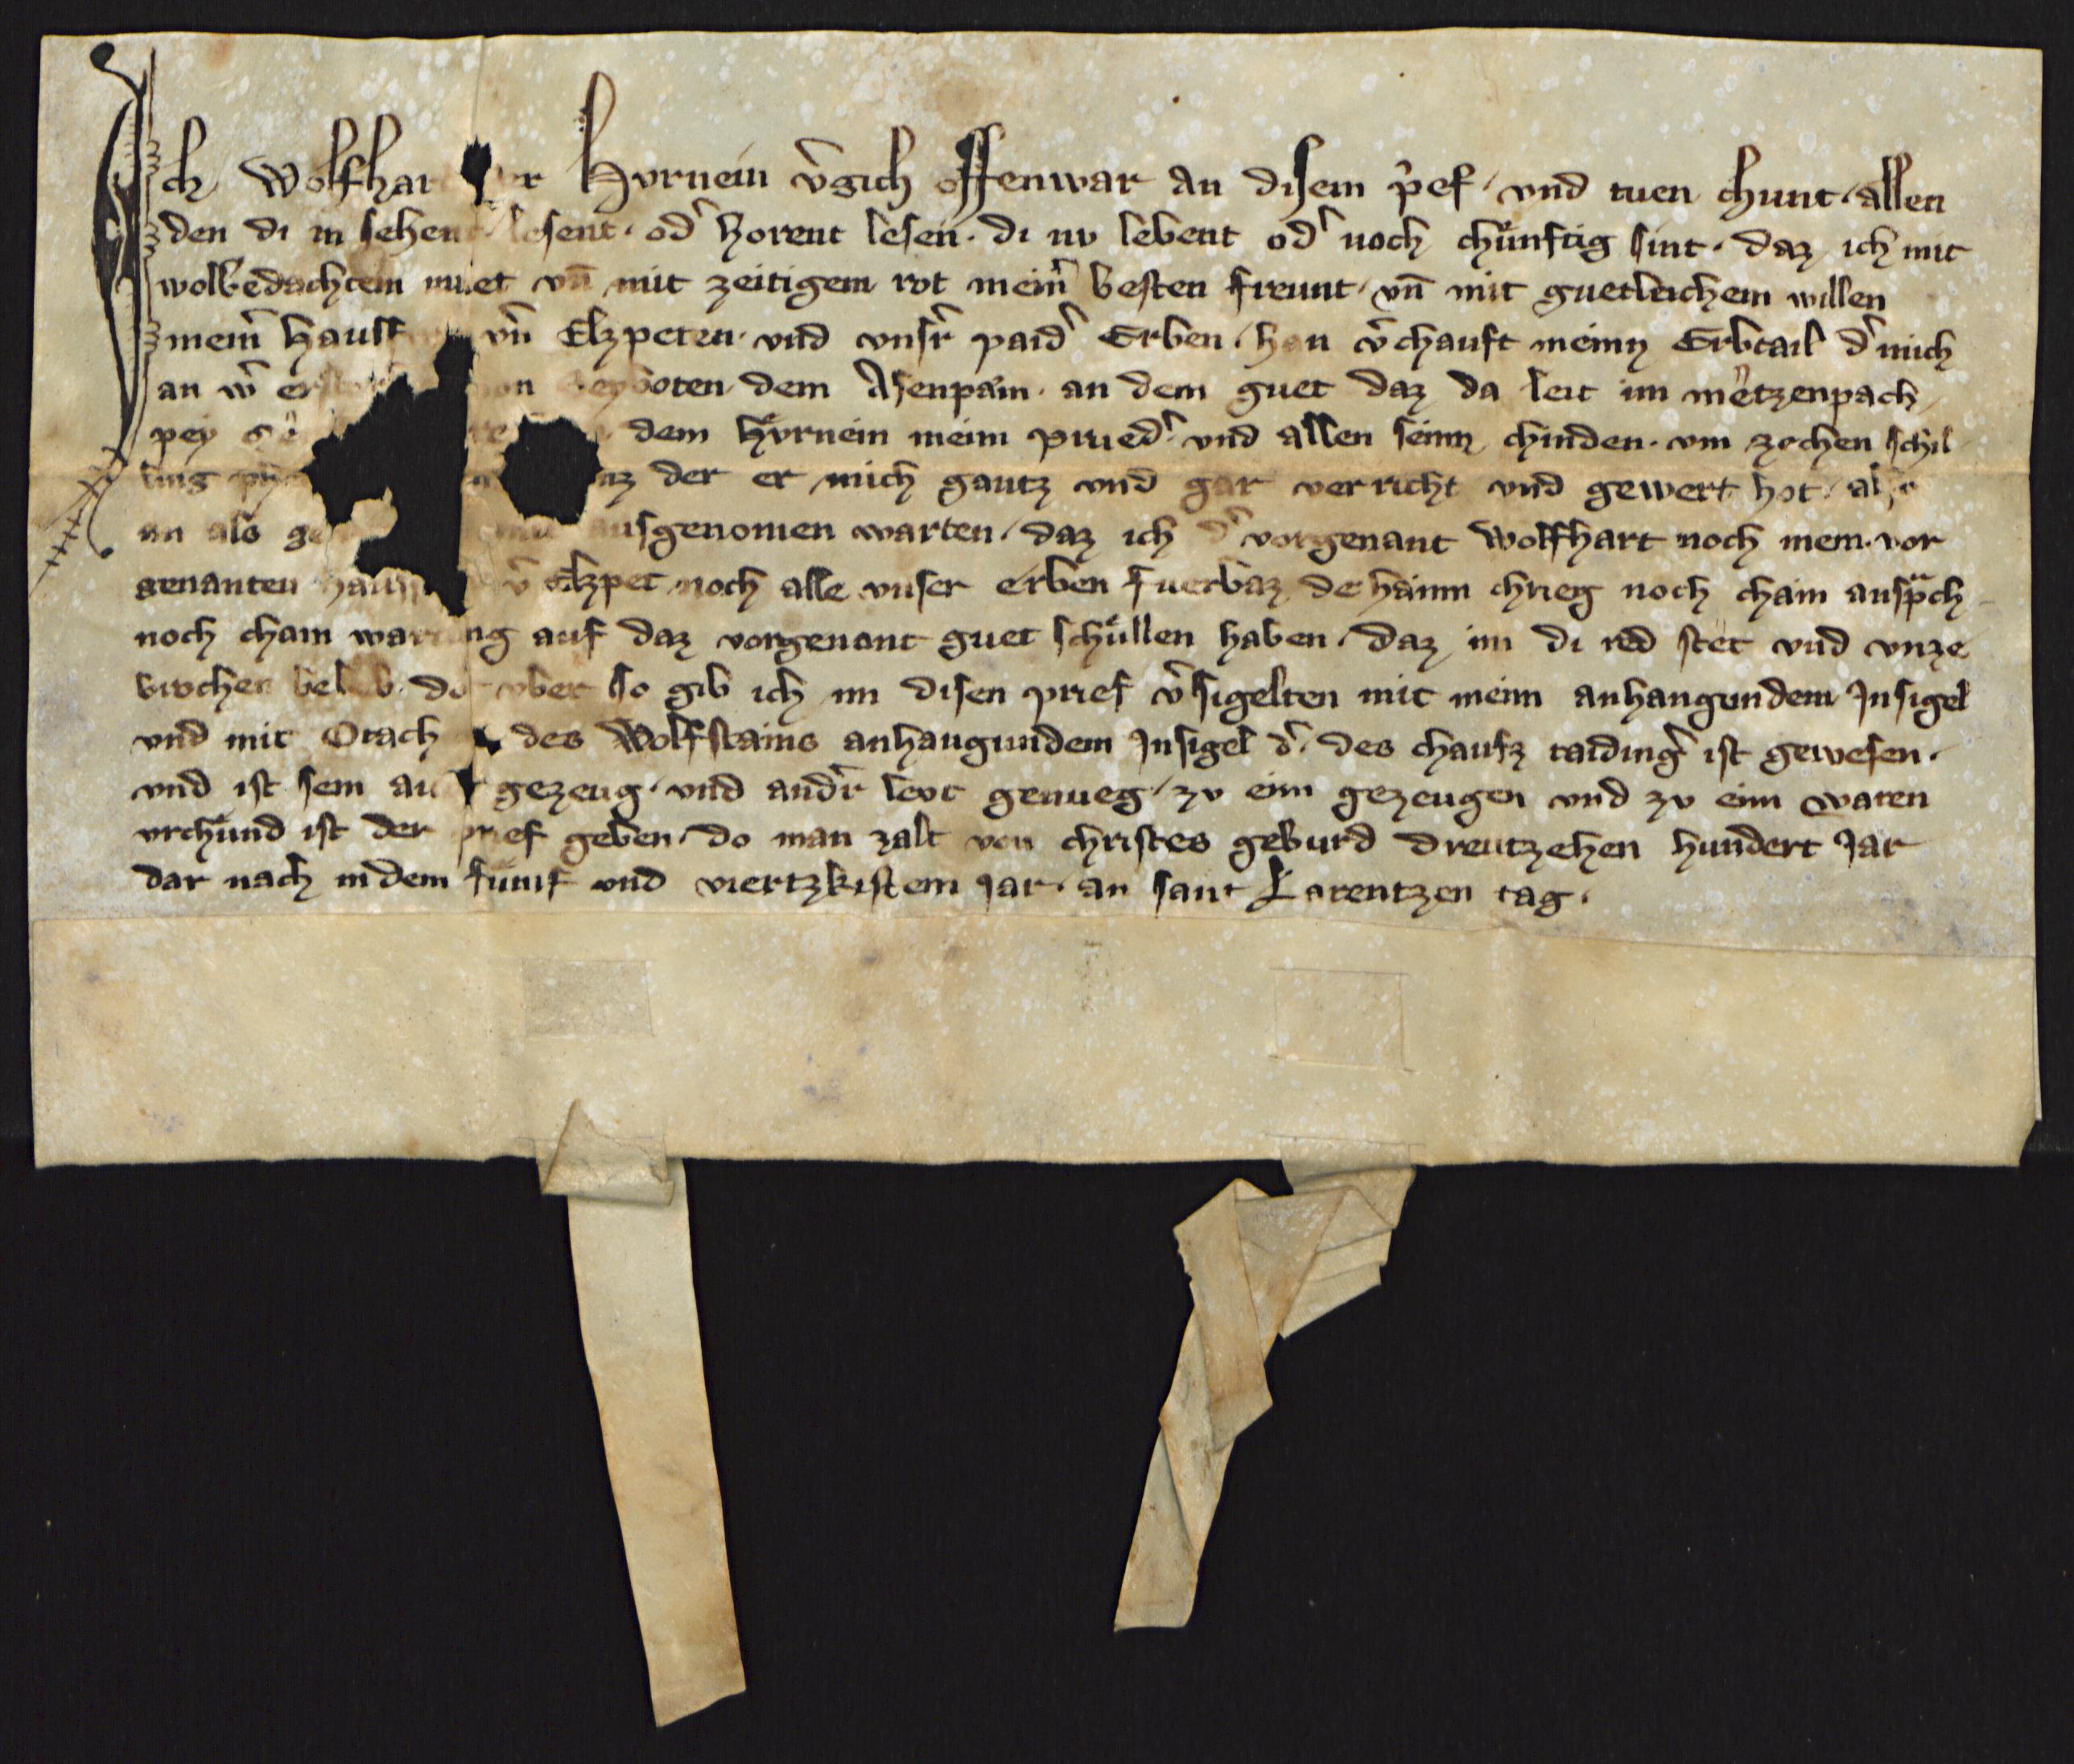 Ich Wolfhar er Hvrnein v̄gich offenwar an disem p̄ef · vnd tuen chunt · allen
den di in sehent lesent · od̄ horent lesen · di nv lebent od̄ noch chünftig sint · daz ich mit
wolbedachtem muet vn̄ mit zeitigem rot mein̄ besten freunt · vn̄ mit guetleichem willen
mein̄ hausf vn̄ Elzpeten · vnd vnsr̄ paid̄ Erben · han v̄chauft meinn Erbtail d̄ mich
an w̄ von Seyboten dem Asenpäm · an dem guet daz da leit im metzenpach
pey dem Hyrnein meim prued̄ · vnd allen seinn chinden · vm zechen schil
ling der er mich gantz vnd gar verricht vnd gewert hot · also
an als ausgenomen warten · daz ich d̄ vorgenant Wolfhart noch mein · vor
genanten hausf v̄ Elzpet noch alle vnser erben fuerbaz dehainn chrieg noch chain ansp̄ch
noch chain wartung auf daz vorgenant guet schüllen haben · daz im di red stet vnd vnze
brochen beleib · dorvber so gib ich im disen prief v̄sigelten mit meim anhangundem Insigel
vnd mit Otach des Wolfstains anhangundem Insigel d̄ · des chaufz taidinḡ ist gewesen ·
vnd ist sein gezeug · vnd and̄r levt genueg · zv eim gezeugen vnd zv eim waren
vrchünd ist der prief geben · do man zalt von christes geburd dreutzehen hundert Jar
dar nach in dem fümf vnd viertzkistem Jar · an sant Larentzen tag ·